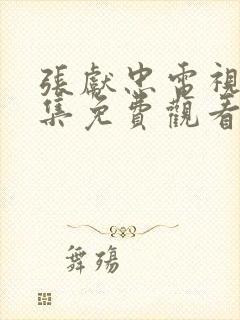 張獻忠電視
集免費觀看
舞殤